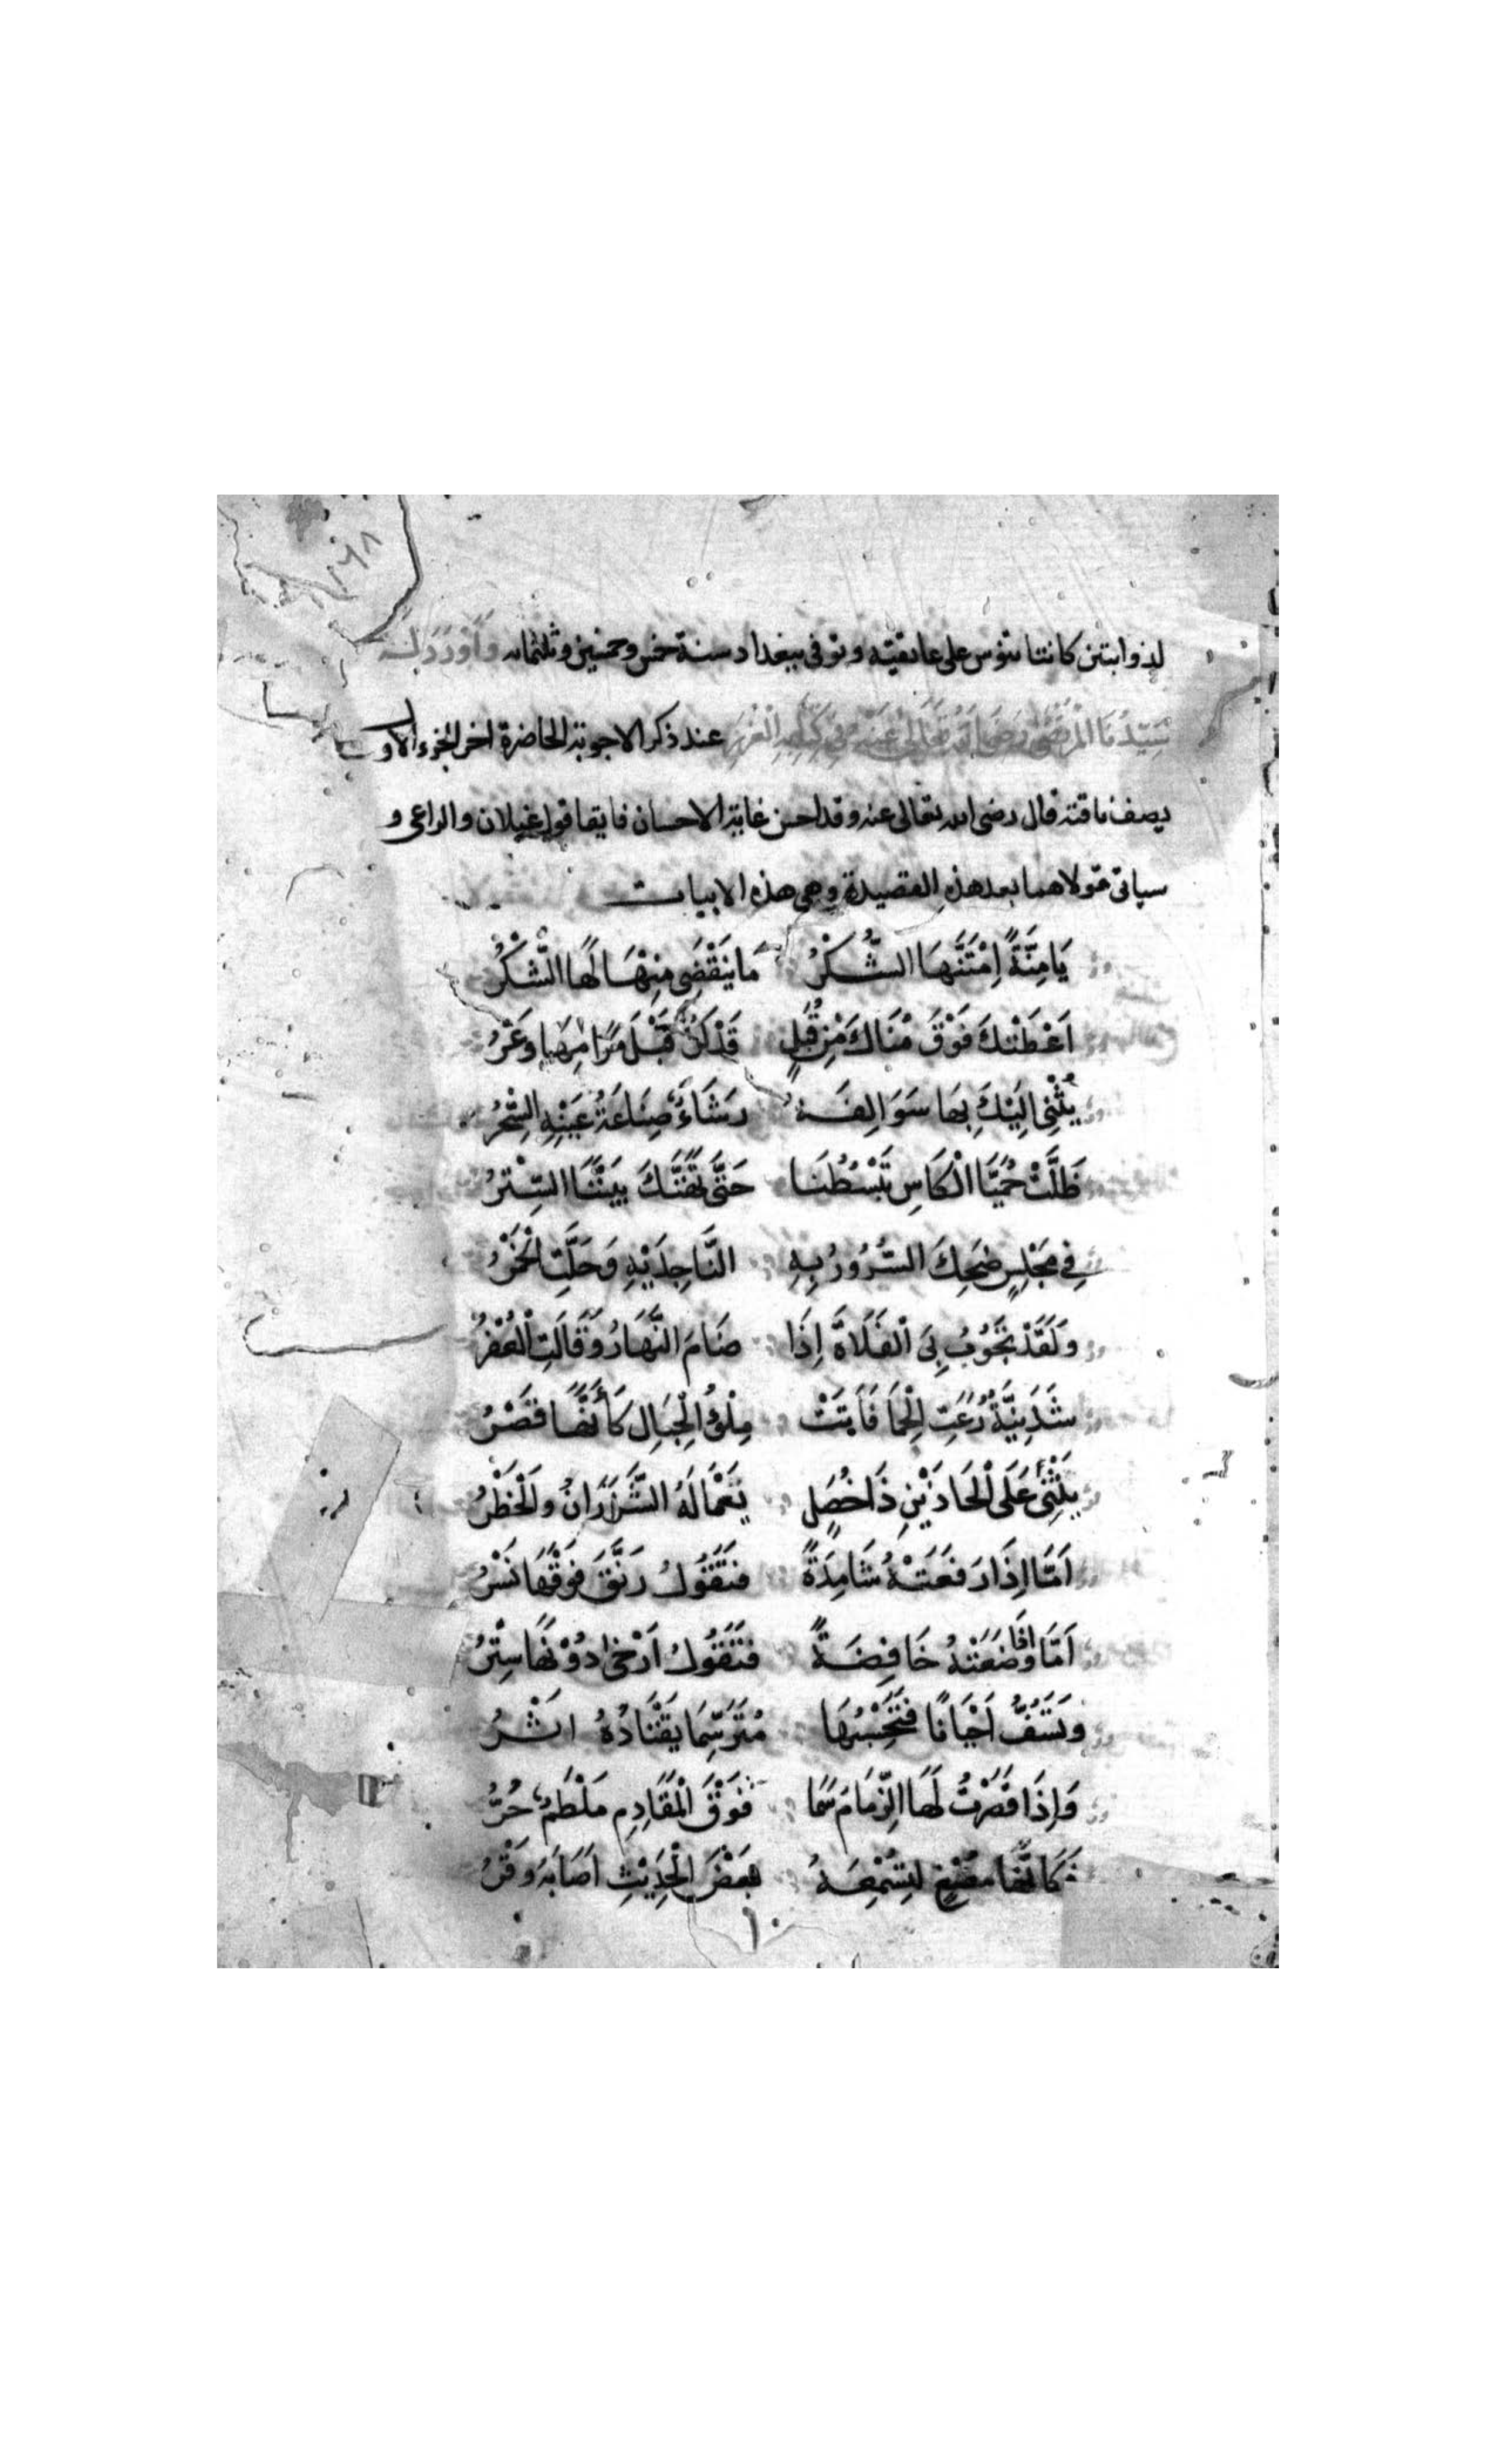 لذوابتين كانتا تنوس على عاتقيه وتوفى ببغداد سنة خمس وخمسين وثلثمائه وَاَوْرَدَ لَه
سَيِّدُنَا المُرْتَضٰى رَضِىَ اللهُ تَعَالٰى عَنْهُ فِي كِتَابِهِ الْغُرَرِ عند ذكر الاجوبة الحاضرة اخر الجزء الاول
يصف ناقته قال رضى الله تعالى عنه وقد احسن غاية الاحسان فايقا قول غيلان والراعى و
سياتى قولاهما بعد هذه القصيدة وهى هذه الابيات
يَا مِنَّةً اِمْتَنَّهَا السُّكْرُ مَا يَنْقَضِى مِنْهَا لَهَا الشُّكْرُ
اَعْطَتْكَ فَوْقَ مُنَاكَ مِنْ قُبَلٍ قَدْ كُنَّ قَبْلَ مَرَامُهَا وَعْرُ
يُثْنِى اِلَيْكَ بِهَا سَوَالِفَهُ رَشَاءٌ صِنَاعَةُ عَيْنِهِ السِّحْرُ
ظَلَّتْ حُمَيَّا الْكَاسِ تَبْسُطُنَا حَتّٰى تَهَتَّكَ بَيْنَنَا السِّتْرُ
فِي مَجْلِسٍ ضَحِكَ السُّرُورُ بِهِ النَّاجِذَيْهِ وَحَلَّتِ الْخَمْرُ
وَلَقَدْ تَجُوبُ بِىَ الْفَلَاةَ اِذَا صَامَ النَّهَارُ وَقَالَتِ الْعُفْرُ
شَدَنِيَّةٌ رَعَتِ الْحِمَا فَاَتَتْ مِلْؤُ الْجِبَالِ كَأَنَّهَا قَصْرُ
يَثْنِى عَلَى الْحَاذَيْنِ ذَا خُصَلٍ يَعْمَالُهُ الشَّزَرَانُ وَالْخَطْرُ
اَمَّا اِذَا رَفَعَتْهُ شَامِذَةً فَتَقُولُ رَنَّقَ فَوْقَهَا نَسْرُ
اَمَّا اِذَا وَضَعَتْهُ خَافِضَةً فَتَقُولُ اَرْخٰى دُوْنَهَا سِتْرُ
وَتَسُفُّ اَحْيَانًا فَتَحْسِبُهَا مُتَرَسِّمًا يَقْتَادُهُ اثْرُ
وَاِذَا قَصَرْتُ لَهَا الزِّمَامَ سَمَا فَوْقَ الْمَقَادِمِ مَلْطَمٌ حُرُّ
فَكَاَنَّهَا مُصْغٍ لِتُسْمِعَهُ بَعْضَ الْحَدِيْثِ اَصَابَهُ وَقْرُ